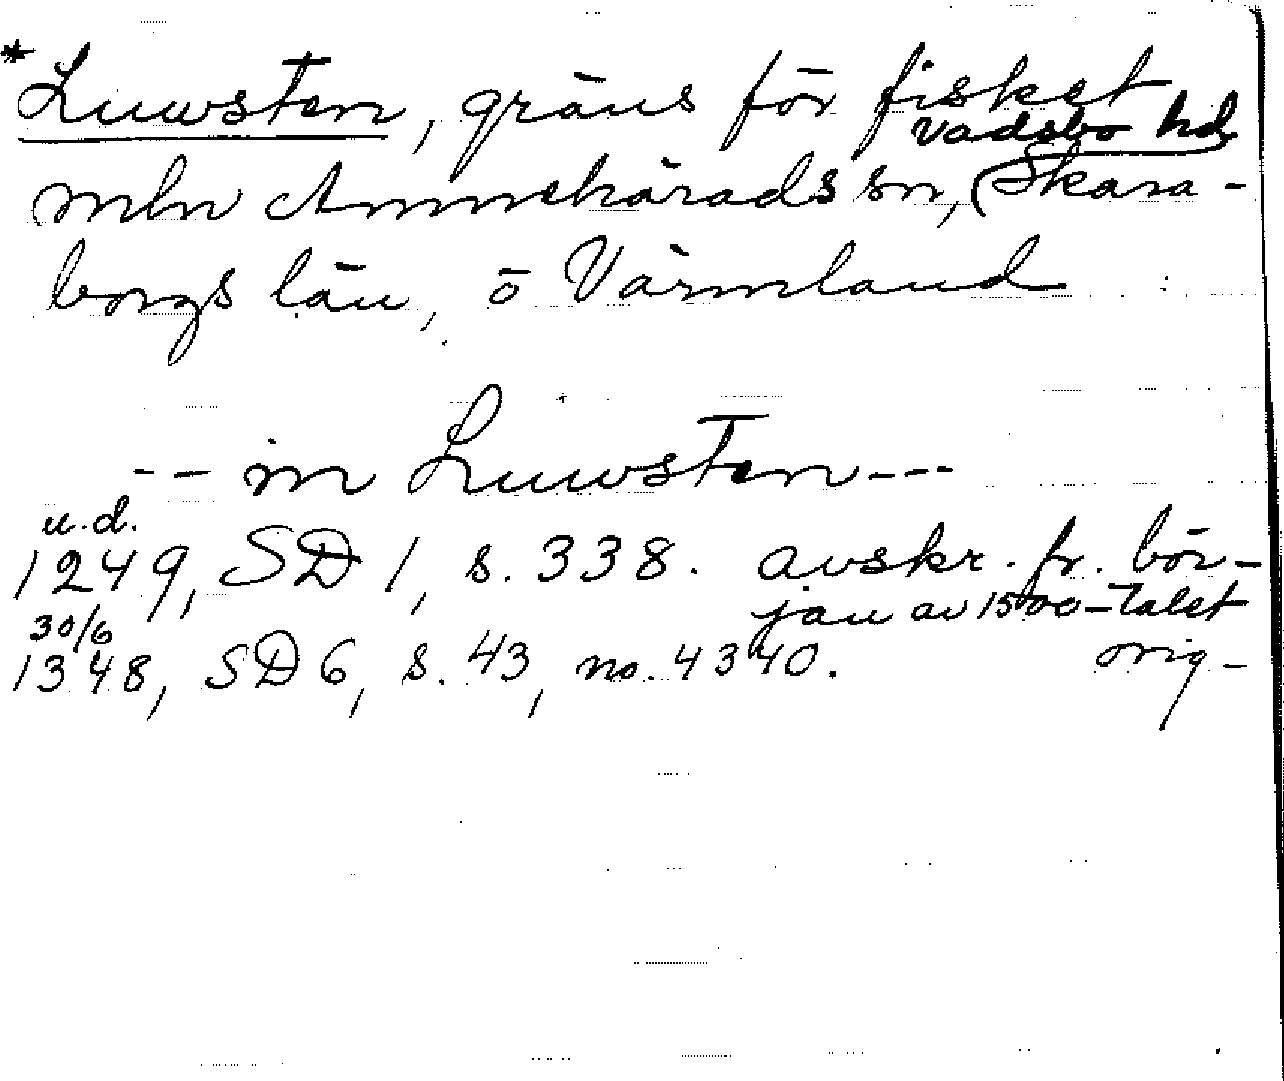 *Luwsten, gräns för fisket
Vadsbo hd
mln Amnehärads sn, Skara-
borgs län, ō Värmland
-- in Luwsten ---
u.d.
1249, SD 1, s. 338. avskr. fr. bör-
jan av 1500-talet
30/6
1348, SD 6, s. 43, no. 4340. orig-